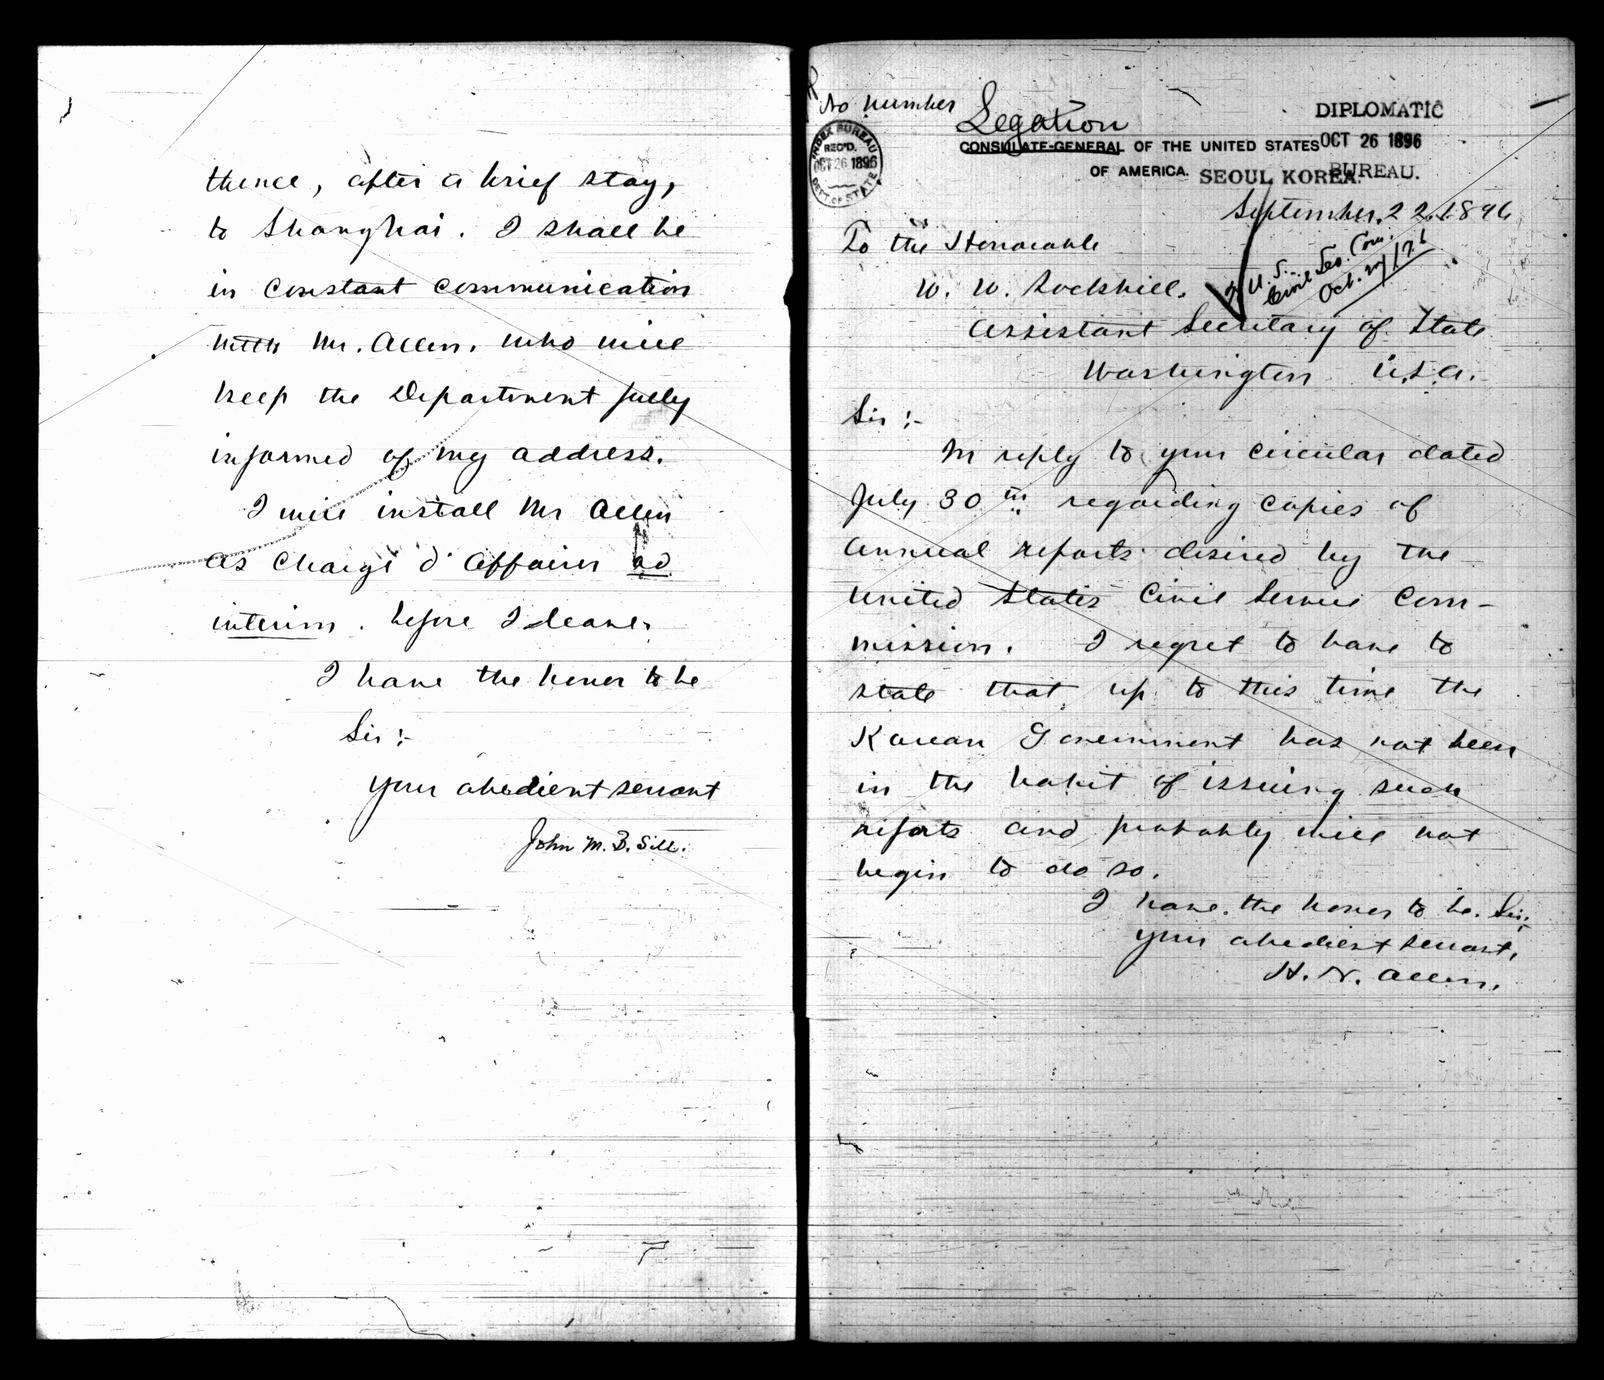 thence, after a brief stay,
to Shanghai. I shall be
in constant communication
with Mr. Allen, who will
keep the Department fully
informed of my address.
I will install Mr Allen
as Chargé d'Affaires ad
interim, before I leave.
I have the honor to be
Sir:-
Your obedient servant
John M. B. Sill.
No number
Legation
CONSULATE-GENERAL OF THE UNITED STATES
OF AMERICA. SEOUL KOREA.
DIPLOMATIC
OCT 26 1896
BUREAU.
INDEX BUREAU
REC'D.
OCT 26 1896
DEPT. OF STATE
September, 22, 1896
To the Honorable
W. W. Rockhill.
U. S.
Civil Ser. Com.
Oct. 27/96
Assistant Secretary of State
Washington U.S.A.
Sir :-
In reply to your circular dated
July 30th regarding copies of
annual reports desired by the
United States Civil Service Com-
mission. I regret to have to
state that, up to this time the
Korean Government has not been
in the habit of issuing such
reports and probably will not
begin to do so.
I have the honor to be. Sir:
your obedient servant,
H. N. Allen.